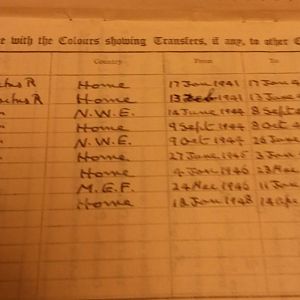 e with the Colours showing Transfers, if any, to other C
Country From To
R Home 17 Jan 1941 17 Jan 4
R Home 13 Feb 1941 13 June
" N.W.E. 14 June 1944 8 Sept
" Home 9 Sept 1944 8 Oct
" N.W.E. 9 Oct 1944 26 June
" Home 27 June 1945 3 Jan
Home 4 Jan 1946 23
M.E.F. 24 1946 11 June
Home 12 Jan 1948 14 Apr